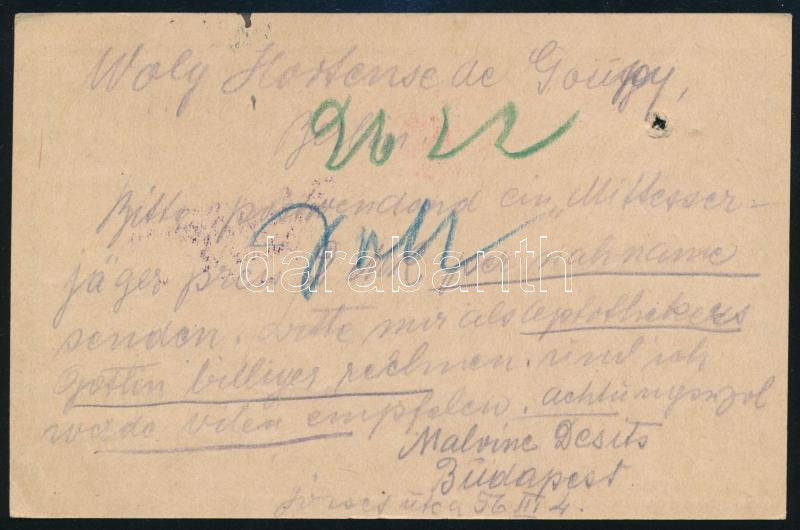 Woly Hortense de Goupy,
Bitte postwendend ein „Mittesser-
jäger per Nachname
senden. Bitte mir als Apothekers
Gattin billiger rechnen. und ich
werde vilen empfelen. achtungsvol
Malvine Desits
Budapest.
utca 56 III 4.
darabanth